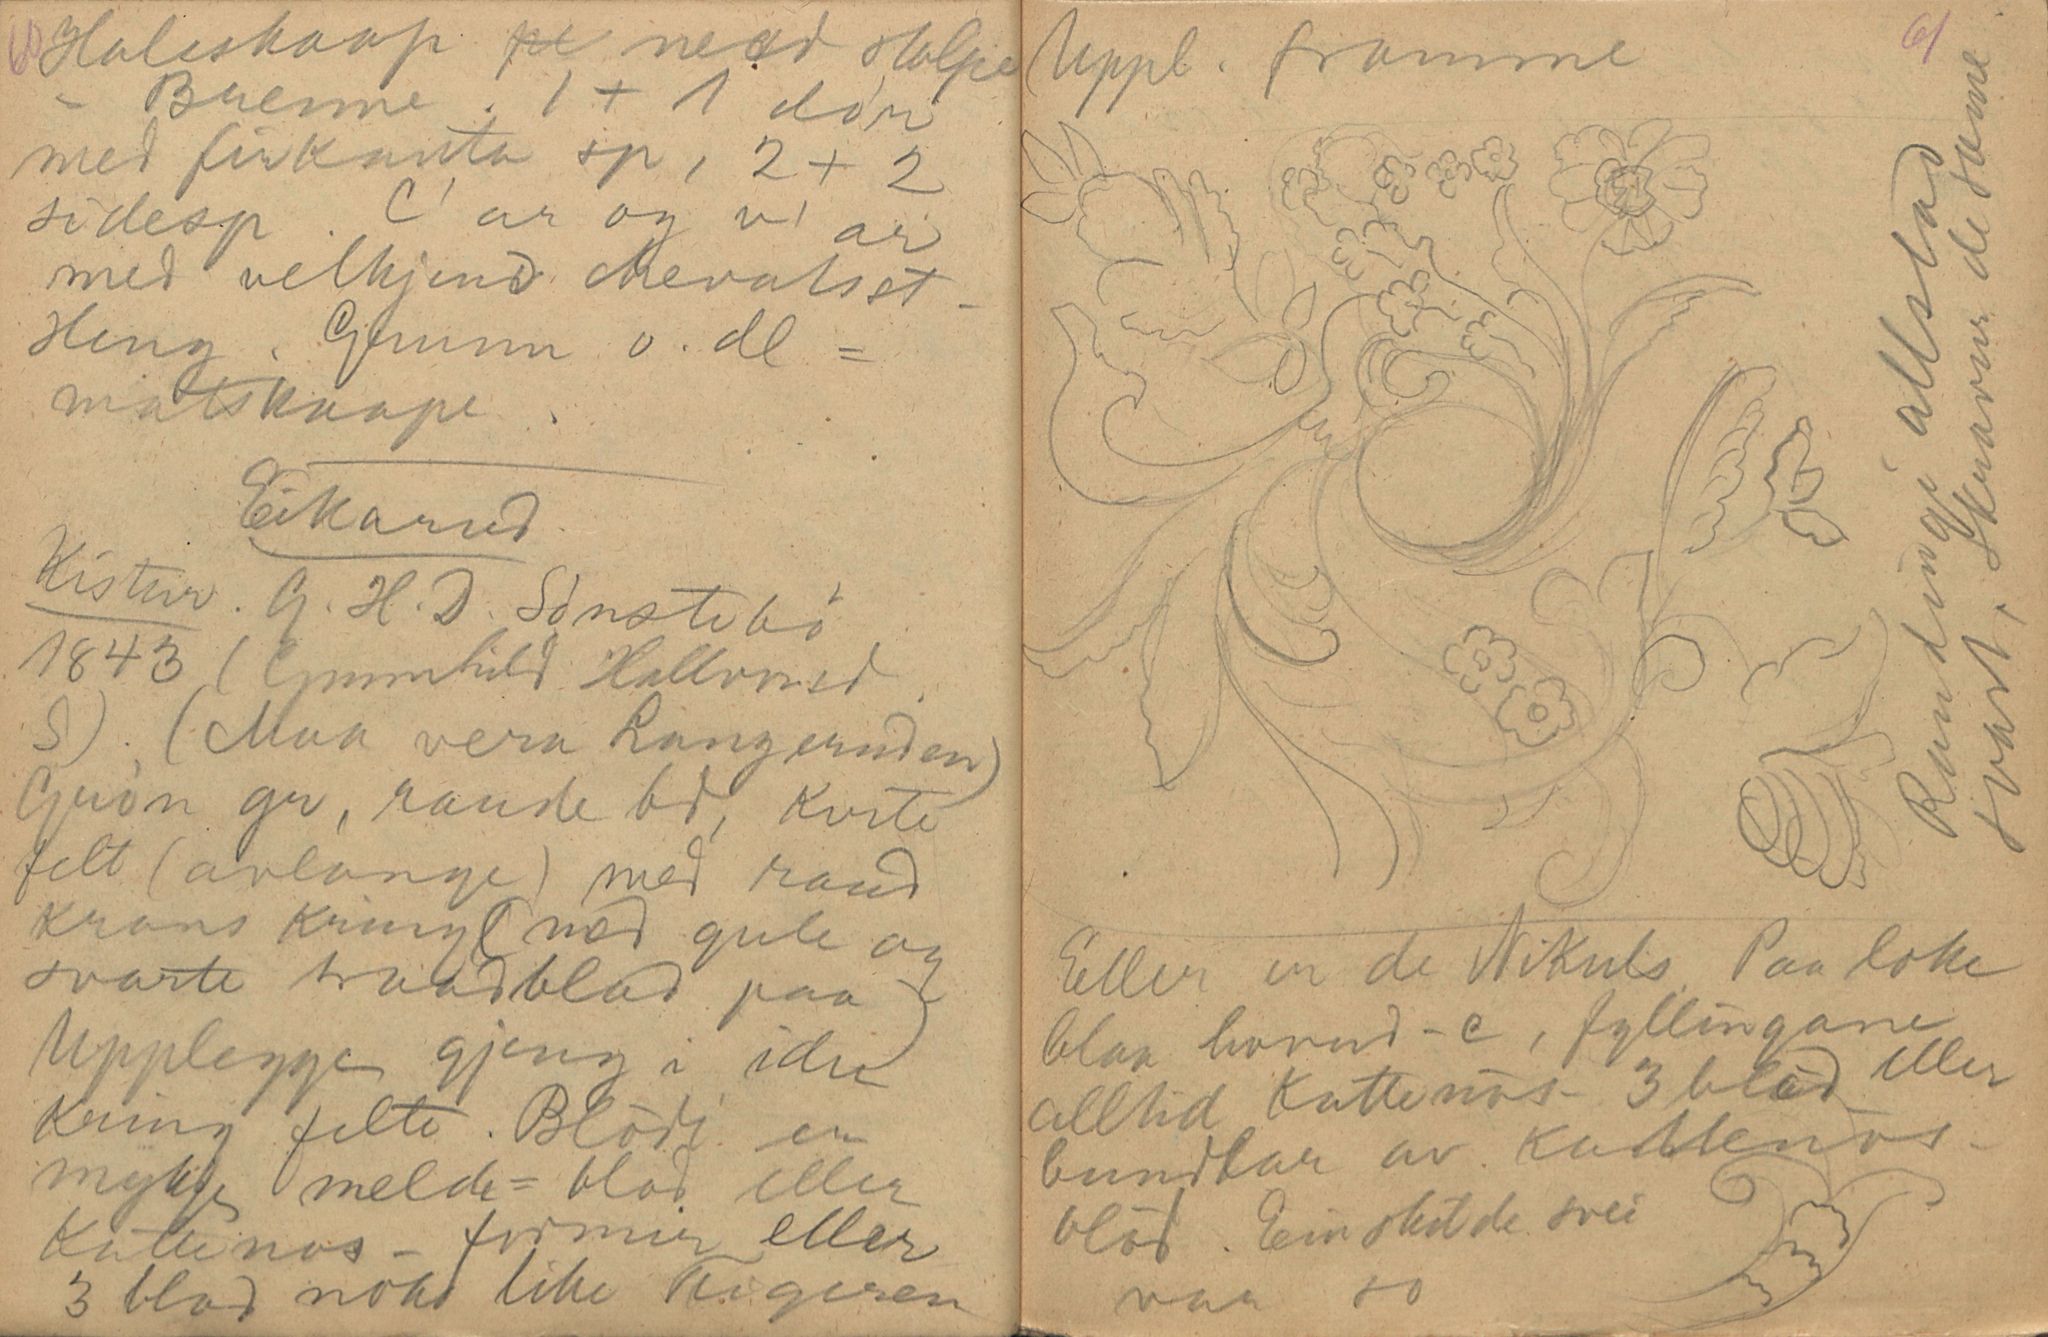 60
Holeskaap med stolpe
- Brenne. 1 + 1 dør
med firkanta sp, 2 + 2
sidesp. C' ar og v' ar
med velkjend
Heng. Grunn o. dl =
matskaape.
Eikarud
Kistur. G. H. D. Sönstebö
1843 (Gunnhild Hallvorsd.
S). (Maa vera Rangeruden)
Grön gr, raude bd, Kvite
felt (avlange) med raud
krans kring (med gule og
svarte traadblad paa)
Upplegge gjeng i idu
kring felte. Blödi er
mykje melde= blad eller
Kattenos- former eller
3 blad noko like Tigeren
61
Uppl. framme
Rundingi allstad
svart, skuavur de same
Eller er de Nikuls. Paa loke
blaa hovud-c, fyllingane
alltid Kattenos- 3 blad eller
bundlar av Kattenos-
blöd. Einskilde svei
var so